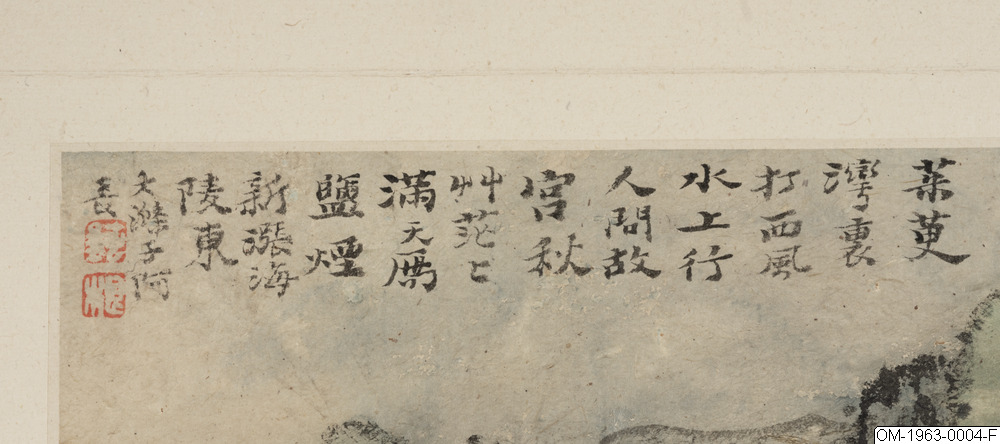 茱萸
灣裏
打西風
水上行
人問故
宮秋
艸茫〻
滿天鴈
鹽煙
新漲海
陵東
大滌子阿
長
OM-1963-0004-F